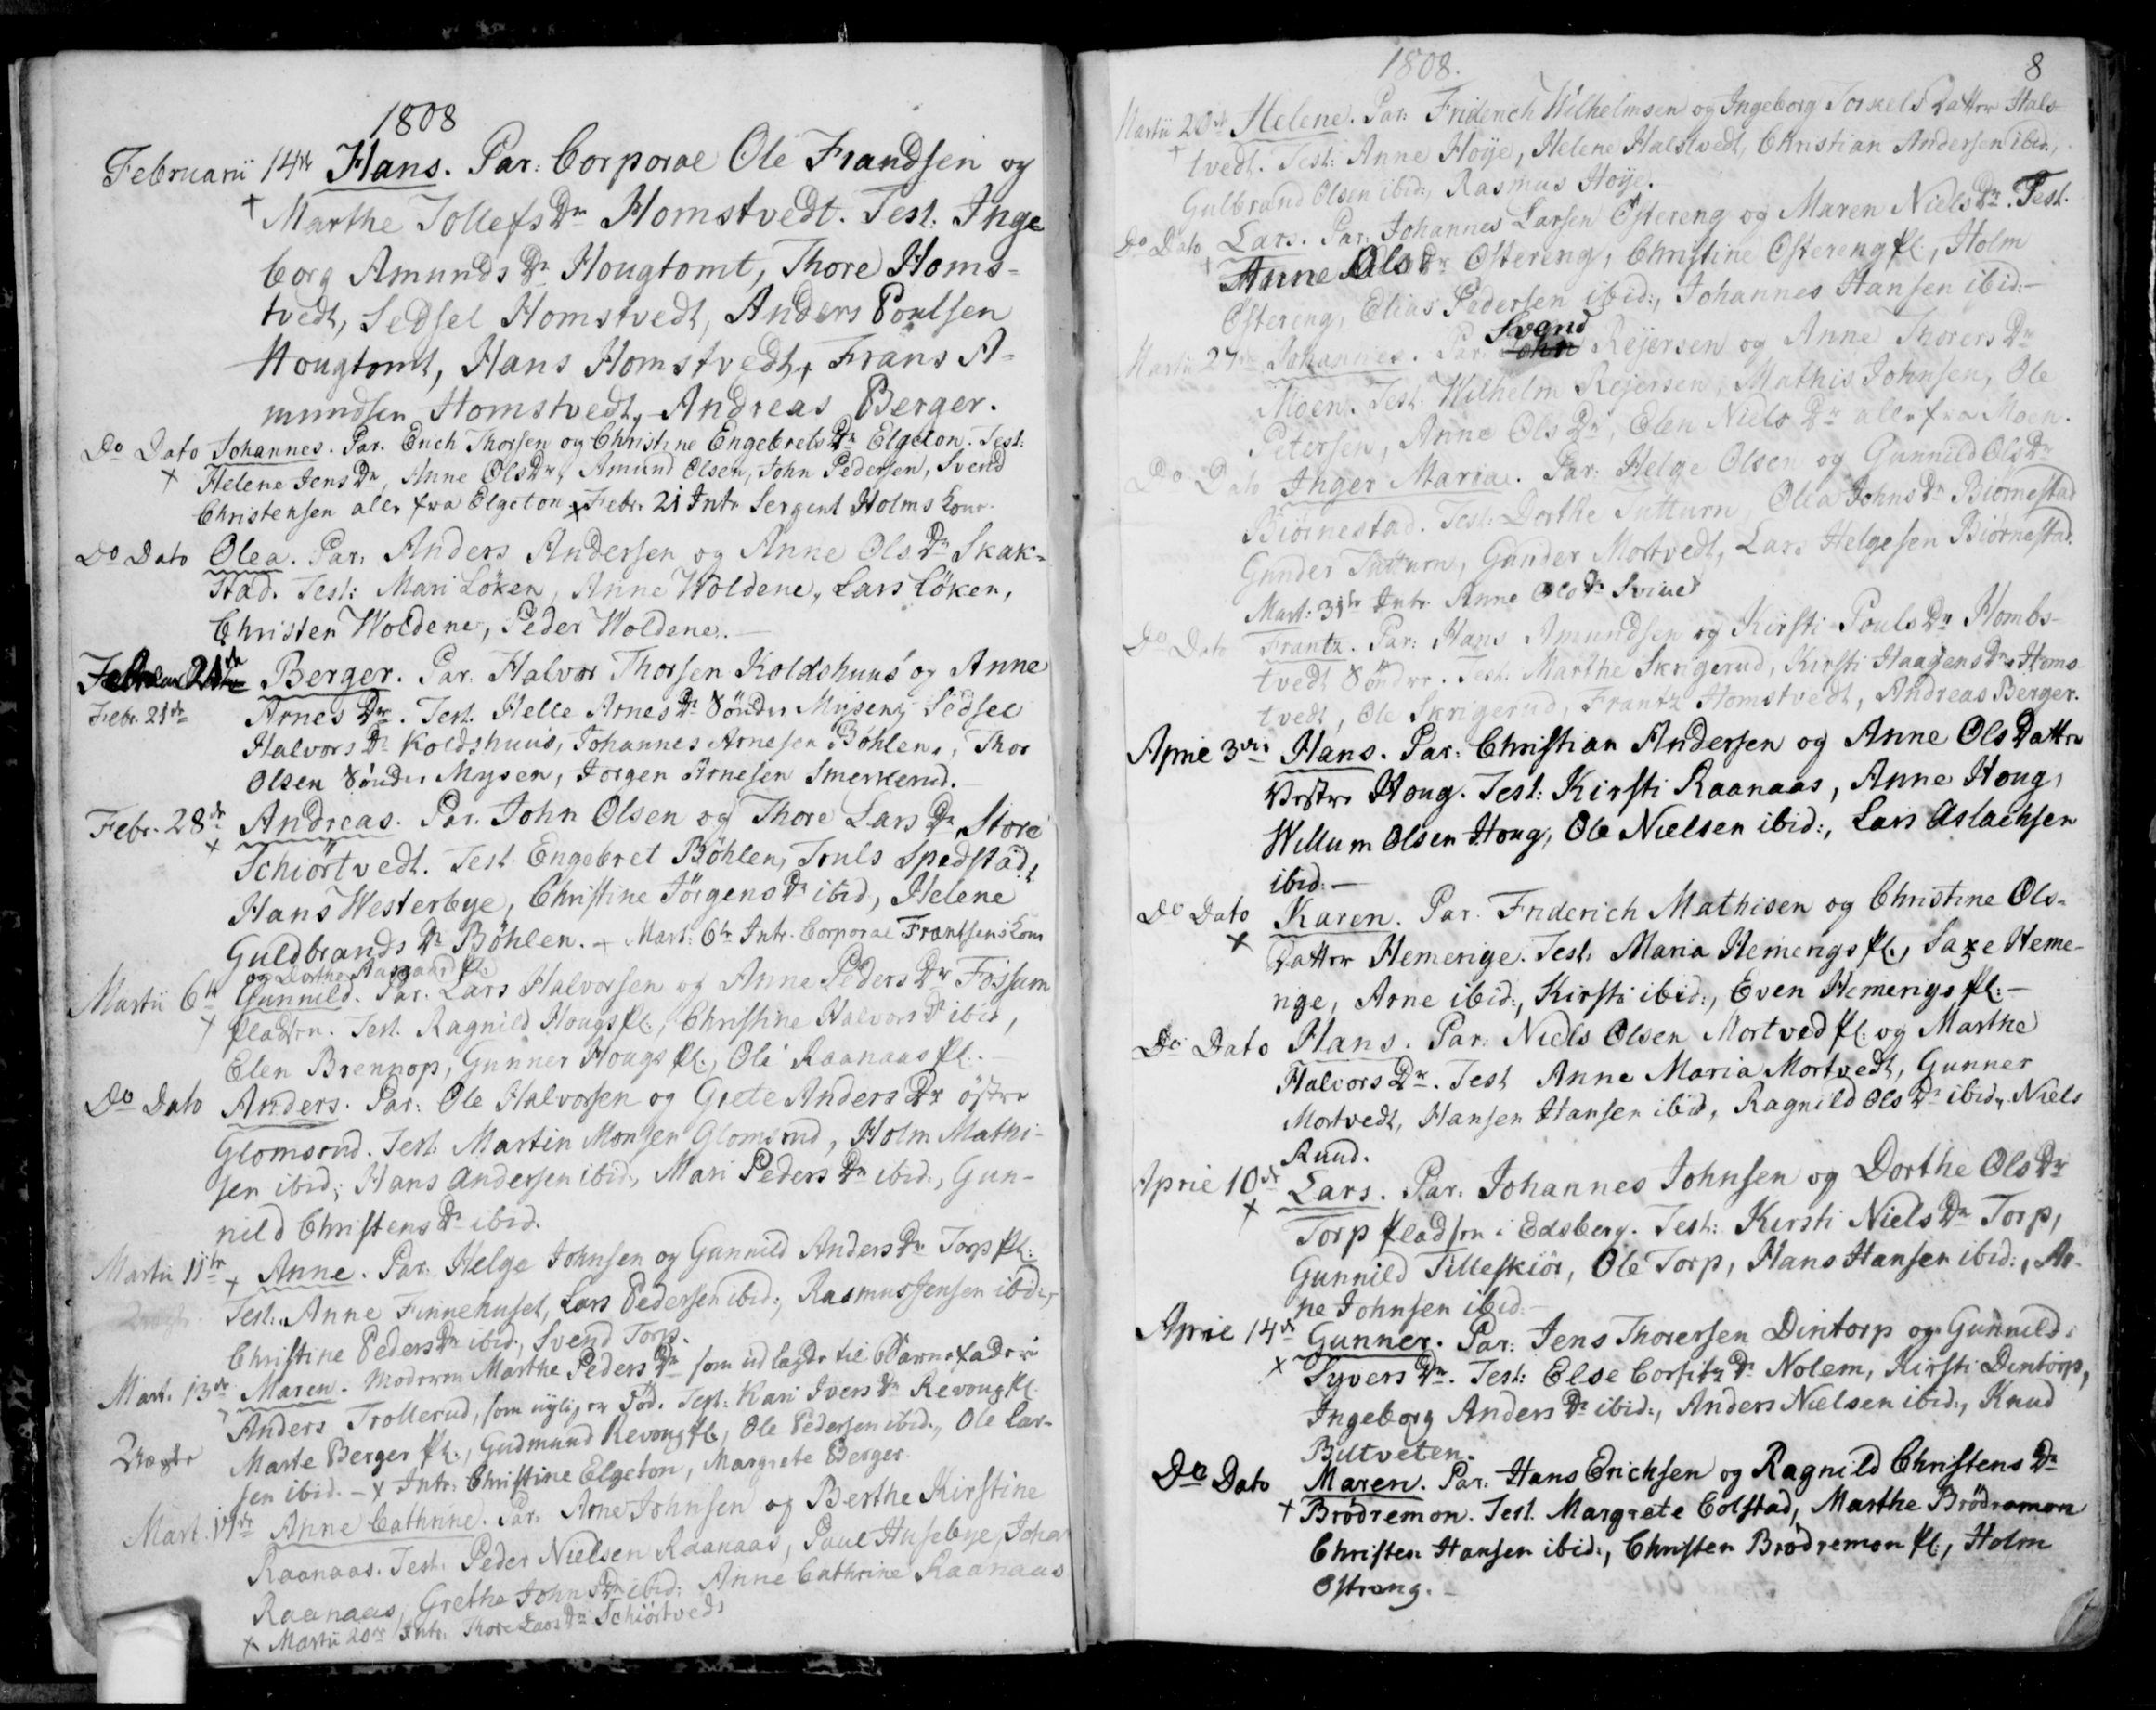 1808
Februarii 14de Hans. Par: Corporal Ole Frandsen og
+ Marthe TollefsDr Homstvedt. Test: Inge
borg AmundsDr Hougtomt, Thore Homs-
tvedt, Sedsel Homstvedt, Anders Poulsen
Hougtomt, Hans Homstvedt, Frans A-
mundsen Homstvedt, Andreas Berger.
Do Dato Johannes. Par. Erich Thorsen og Christine EngebretsDr Elgeton. Test:
+ Helene JensDr, Anne OlsDr, Amund Olsen, John Pedersen, Svend
Christensen alle fra Elgeton. + Febr. 21 Intr. Sergent Holms Kone
Do Dato Olea. Par. Anders Andersen og Anne OlsDr Skak-
stad. Test: Mari Löken, Anne Woldene, Lars Löken,
Christen Woldene, Peder Woldene.
Berger. Par. Halvor Thorsen Koldshuus og Anne
Febr. 21de ArnesDr. Test. Helle ArnesDr Sönder Mysen, Sedsel
HalvorsDr Koldshuus, Johannes Arnesen Böhlen, Thor
Olsen Sönder Mysen, Jorgen Arnesen Smerkerud.
Febr. 28de Andreas. Par. John Olsen og Thore LarsDr Store
+ Schiörtvedt. Test. Engebret Böhlen, Truls Spedstad,
Hans Westerbye, Christine JörgensDr ibid, Helene
GuldbrandsDr Böhlen. + Mart: 6te Intr. Corporal Frantsens Kone
og Dorthe Aasgaard Pl:
Martii 6te Gunnild. Par. Lars Halvorsen og Anne PedersDr Fossum
+ pladsen. Test. Ragnild Hougs pl:, Christine HalvorsDr ibid,
Elen Brennop, Gunner Hougs pl:, Ole Raanaas pl:
Do Dato Anders. Par: Ole Halvorsen og Grete AndersDr östre
Glomsrud. Test. Martin Monsen Glomsrud, Holm Mathi-
sen ibid; Hans Andersen ibid, Mari PedersDr ibid:, Gun-
nild ChristensDr ibid.
Martii 11te + Anne. Par. Helge Johnsen og Gunnild AndersDr Torp pl:
Test: Anne Finnehuset, Lars Pedersen ibid:, Rasmus Jensen ibid:,
Christine PedersDr ibid:, Svend Torp.
Mart. 13de Maren. Moderen Marthe PedersDr som udlagde til Barnefader
Anders Trollerud, som nylig er Död. Test: Kari IversDr Revoug pl:
Uægte Marte Berger pl:, Gudmund Revoug pl:, Ole Pedersen ibid:, Ole Lar-
sen ibid. - + Intr: Christine Elgeton, Margrete Berger
Mart. Anne Cathrine. Par. Arne Johnsen og Berthe Kirstine
Raanaas. Test. Peder Nielsen Raanaas, Paul Husebye, Johan
Raanaas, Grethe JohnsDr ibid: Anne Cathrine Raanaas
+ Martii 20de Intr: Thore LarsDr Schiörtvedt
1808. 8
Martii 20de Helene. Par: Friderich Wilhelmsen og Ingeborg Torkels Datter Hals-
+ tvedt. Test: Anne Höije, Helene Halstvedt, Christian Andersen ibid:,
Gulbrand Olsen ibid:, Rasmus Höije.
Do Dato Lars. Par: Johannes Larsen Östereng og Maren NielsDr. Test.
+ Anne OlsDr Östereng, Christine Östereng pl:, Holm
Östereng, Elias Pedersen ibid:, Johannes Hansen ibid:-
Svend
Martii 27de Johannes. Par: John Rejersen og Anne ThorersDr
Moen. Test. Wilhelm Rejersen, Mathis Johnsen, Ole
Petersen, Anne OlsDr, Elen NielsDr alle fra Moen.
Do Dato Inger Maria. Par: Helge Olsen og Gunnild OlsDr
Biörnestad. Test: Dorthe Tutturn, Olea JohnsDr Biörnestad
Gunder Tutturn, Gunder Mortvedt, Lars Helgesen Biörnestad.
Mart: 31te Intr. Anne OlsDr
Do Dato Frantz. Par: Hans Amundsen og Kirsti PoulsDr Hombs-
tvedt Söndre. Test. Marthe Skrigerud, Kirsti HaagensDr Homs-
tvedt, Ole Skrigerud, Frantz Homstvedt, Andreas Berger.
April 3die Hans. Par: Christian Andersen og Anne Ols Datter
Vestre Houg. Test: Kirsti Raanaas, Anne Houg,
Willum Olsen Houg, Ole Nielsen ibid:, Lars Aslachsen
ibid:-
Do Dato Karen. Par. Friderich Mathisen og Christine Ols-
+ Datter Hemerige. Test. Maria Hemerigs pl:, Saxe Heme-
rige, Arne ibid:, Kirsti ibid:, Even Hemerigs pl:-
Do Dato Hans. Par: Niels Olsen Mortved pl: og Marthe
HalvorsDr. Test Anne Maria Mortvedt, Gunner
Mortvedt, Hansen Hansen ibid, Ragnild OlsDr ibid, Niels
Ruud.
April 10de Lars. Par. Johannes Johnsen og Dorthe OlsDr
+ Torp pladsen i Edsberg. Test: Kirsti NielsDr Torp,
Gunnild Tilleskiör, Ole Torp, Hans Hansen ibid:, Ar-
ne Johnsen ibid:-
April 14de Gunner. Par: Jens Thorersen Dintorp og Gunnild
+ SyversDr. Test: Else CorfitzDr Nolem, Kirsti Dintorp,
Ingeborg AndersDr ibid:, Anders Nielsen ibid:, Knud
Butveten.
Do Dato Maren. Par. Hans Erichsen og Ragnild ChristensDr
+ Brödremon. Test. Margrete Colstad, Marthe Brödremon
Christen Hansen ibid:, Christen Brödremon pl:, Holm
Ostreng. -